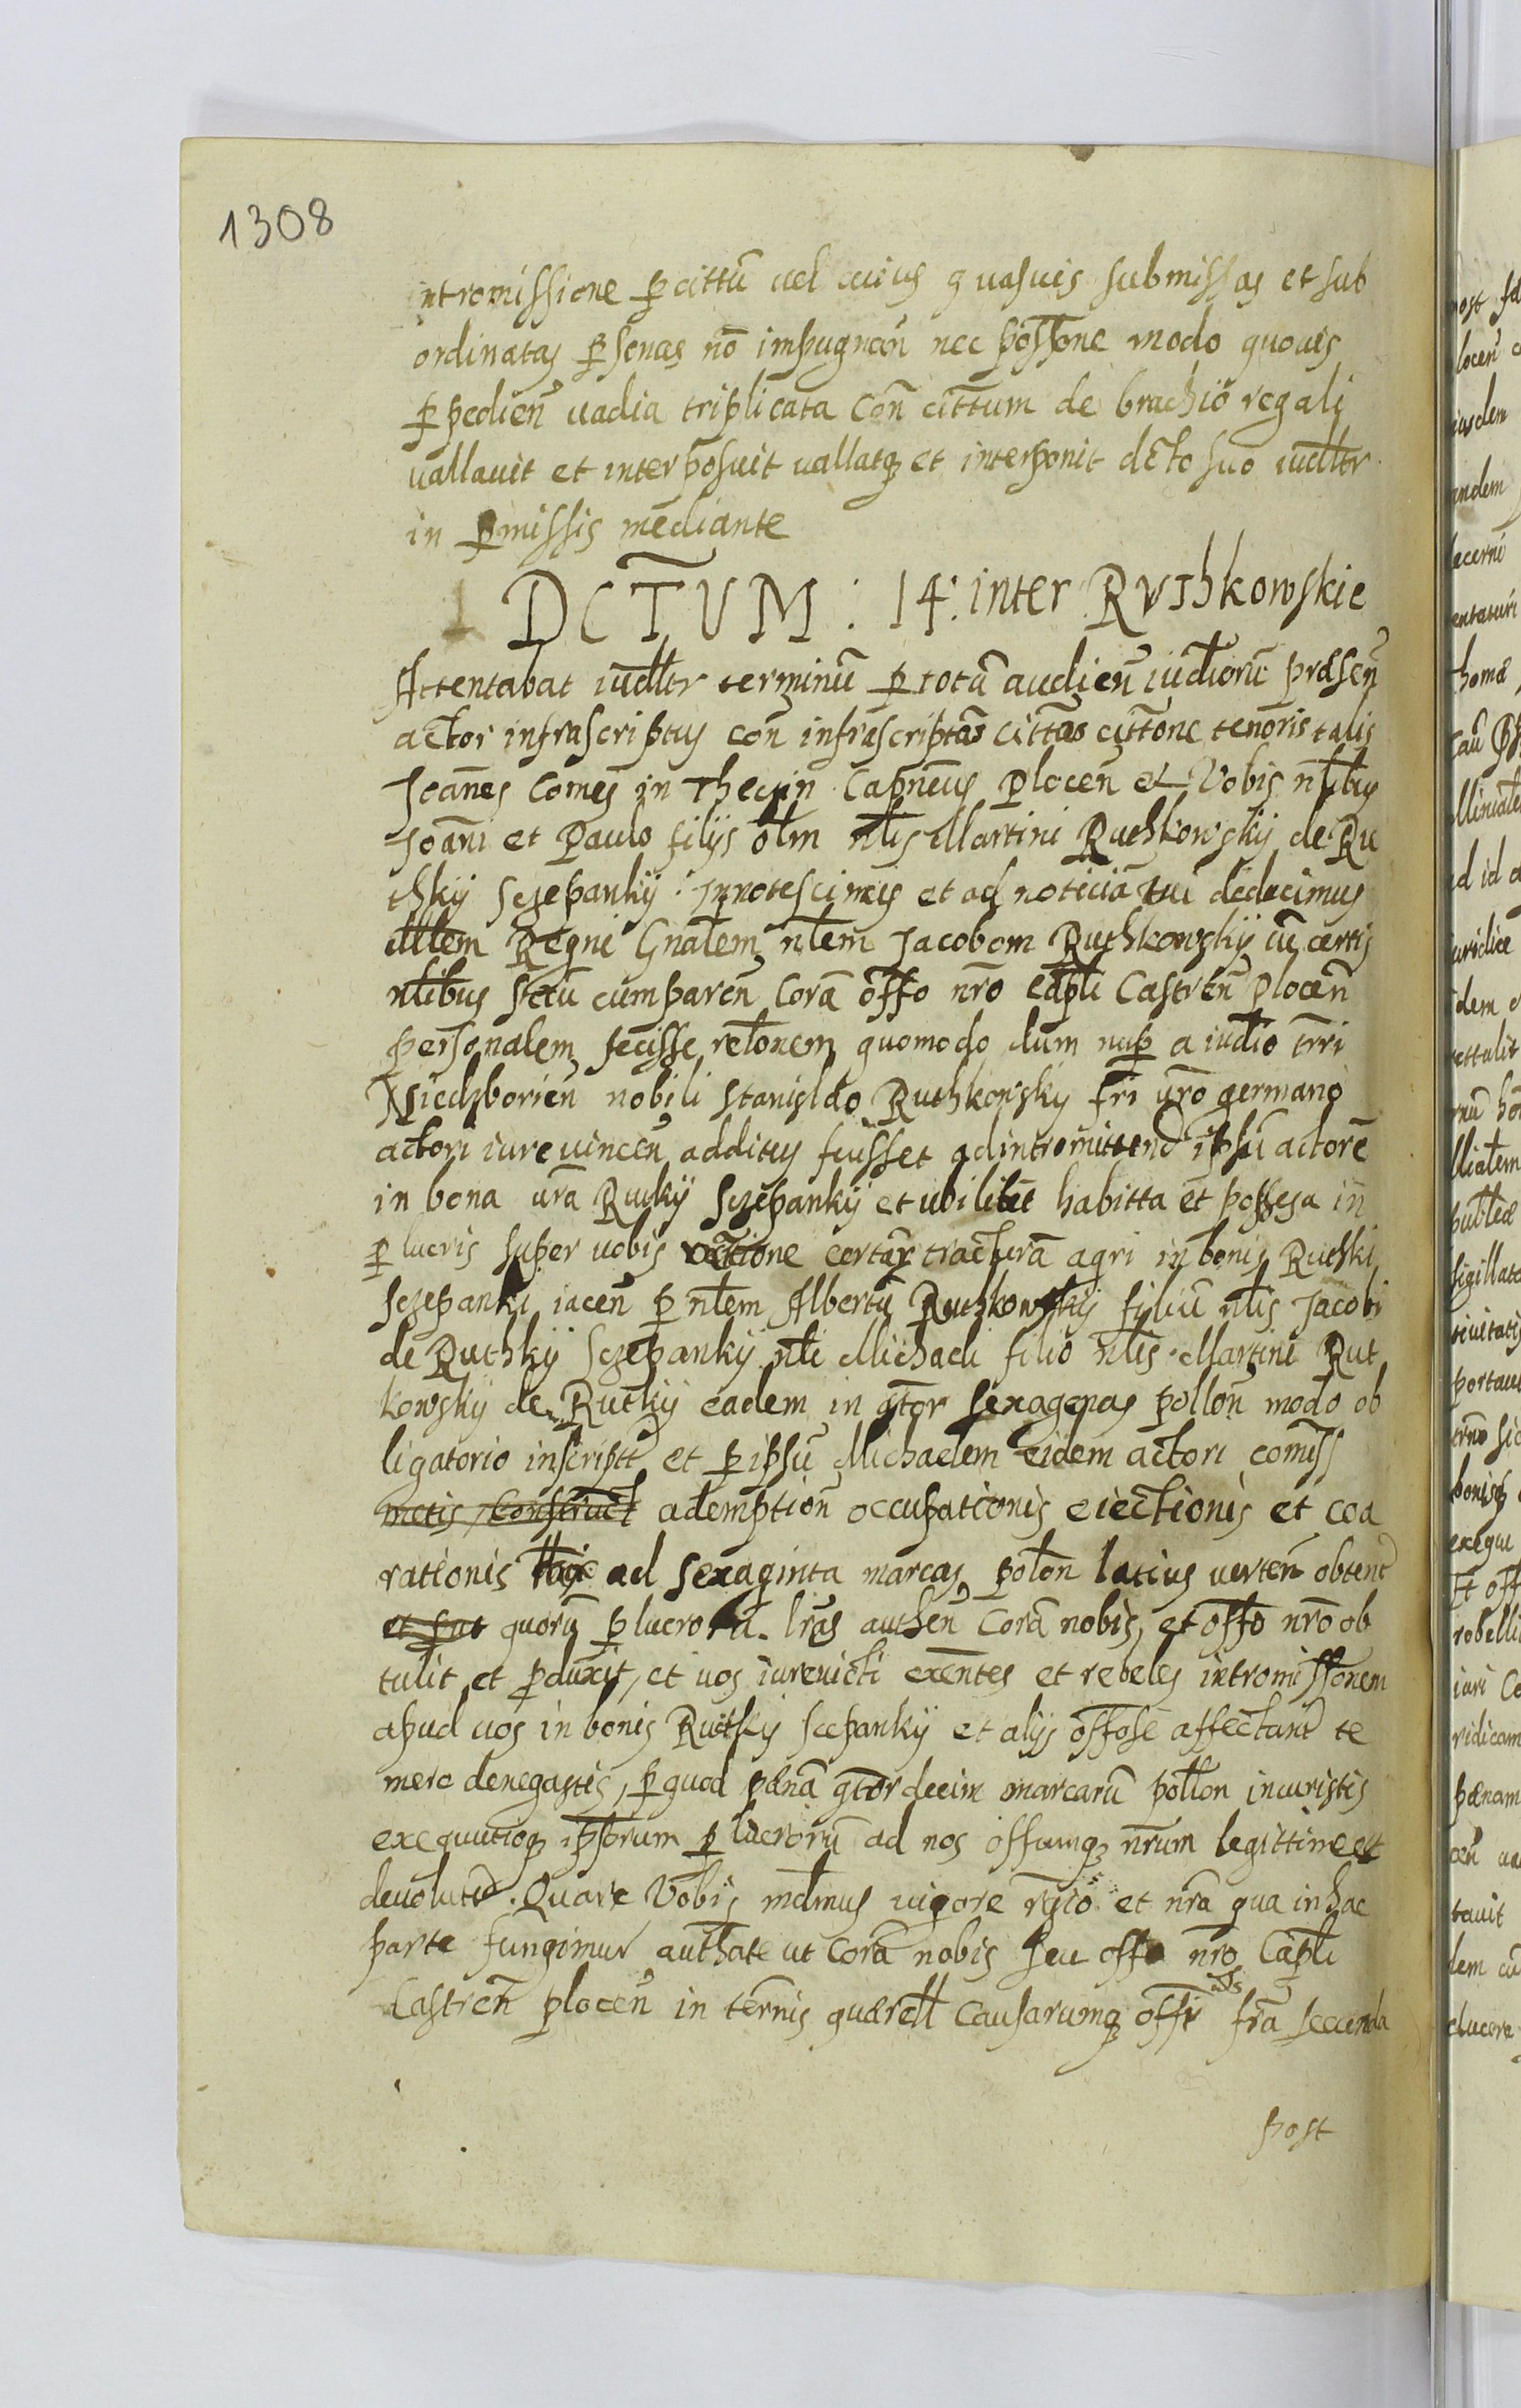 1308
intromissione p cittũ vel cuius quasuis submissas et sub
ordinatas psonas nõ impugnan̄ nec possone modo quouis
p̱pedien̄ vadia triplicata Con̄ cittum de brachio regali
vallauit et interposuit vallatq; et interponit dcto suo iudltr
in pmissis mediante
DCTUM : 14. inter Ruthkowskie
Attentabat iudltr terminũ p totã audien̄ iudioru præsen̄
actor infrascriptus con̄ infrascriptas cittas cittone tenoris talis
Joañes Comes in Theczin Capneus Plocen̄ et Vobis nlibus
Joañi et Paulo filijs olm nlis Martini Ruthkowskÿ de Ru
thkÿ Sczepankÿ : Innotescimus et ad noticiã vrã deducimus
Mltem Regni Gnalem nlem Jacobom Ruthkowskÿ cũ certis
nlibus secũ cumparen̄ Corã offo nrõ Capli Castren̄ Plocen̄
personalem fecisse relonem quomodo dum nup a iudio trri
Niedzborien̄ nobili Stanisldo Ruthkowsky fri vrõ germano
actori iure vincen̄ additus fuisset ad intromittend ipsũ actorẽ
in bona vrã Rutkÿ Sczepankÿ et vbilibet habitta et possessa in
p lucris super vobis rõtione certar tracturã agri in bonis Ruthki
Sczepanki iacen̄ p nlem Albertũ Ruthkowskij filiũ nlis Jacobi
de Ruthkÿ Sczepankÿ nli Michaeli filio nlis Martini Rut
kowskÿ de Rutkÿ eadem in qtor sexagenas pollon̄ modo ob
ligatorio inscript et p ipsũ Michaelem eidem actori comiss
metis construct ademption̄ occupationis eiectionis et coa
rationis ad sexaginta marcas polon latius verten̄ obtent
et put quorũ p lucrorũ lrãs authen̄ Corã nobis et offo nrõ ob
tulit et pduxit, et vos iurevicti exentes et rebeles intromissonem
apud vos in bonis Rutkÿ Scepankÿ et alijs offose affectant te
mere denegastis, p quod pænã qtordecim marcarũ pollon incuristis
exequutioq; ipsorum p lucrorũ ad nos offumq; nrum legittime est
devolut. Quare Vobis mdmus vigore rgio et nrã qua in hac
parte fungimur authate ut Corã nobis seu offo nrõ Capli
Castren̄ plocen̄ in termis quærell Causarumq; offi frã secunda
post